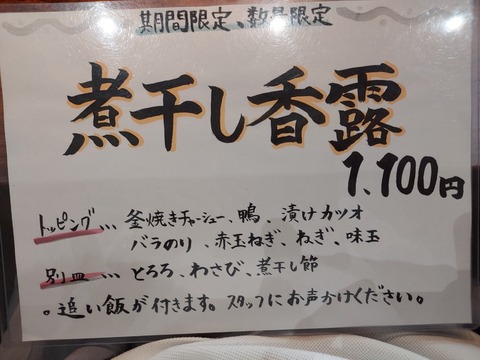 期間限定、数量限定
煮干し香露
1,100円
トッピング… 釜焼きチャーシュー、鴨、漬けカツオ
バラのり、赤玉ねぎ、ねぎ、味玉
別皿… とろろ、わさび、煮干し節
。追い飯が付きます。スタッフにお声かけください。